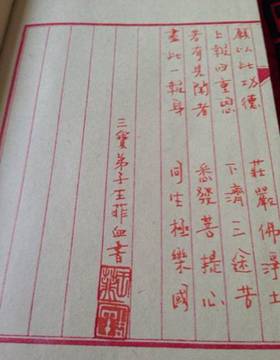 願以此功德　莊嚴佛淨土
上報四重恩　下濟三途苦
若有見聞者　悉發菩提心
盡此一報身　同生極樂國
三寶弟子王菲血書